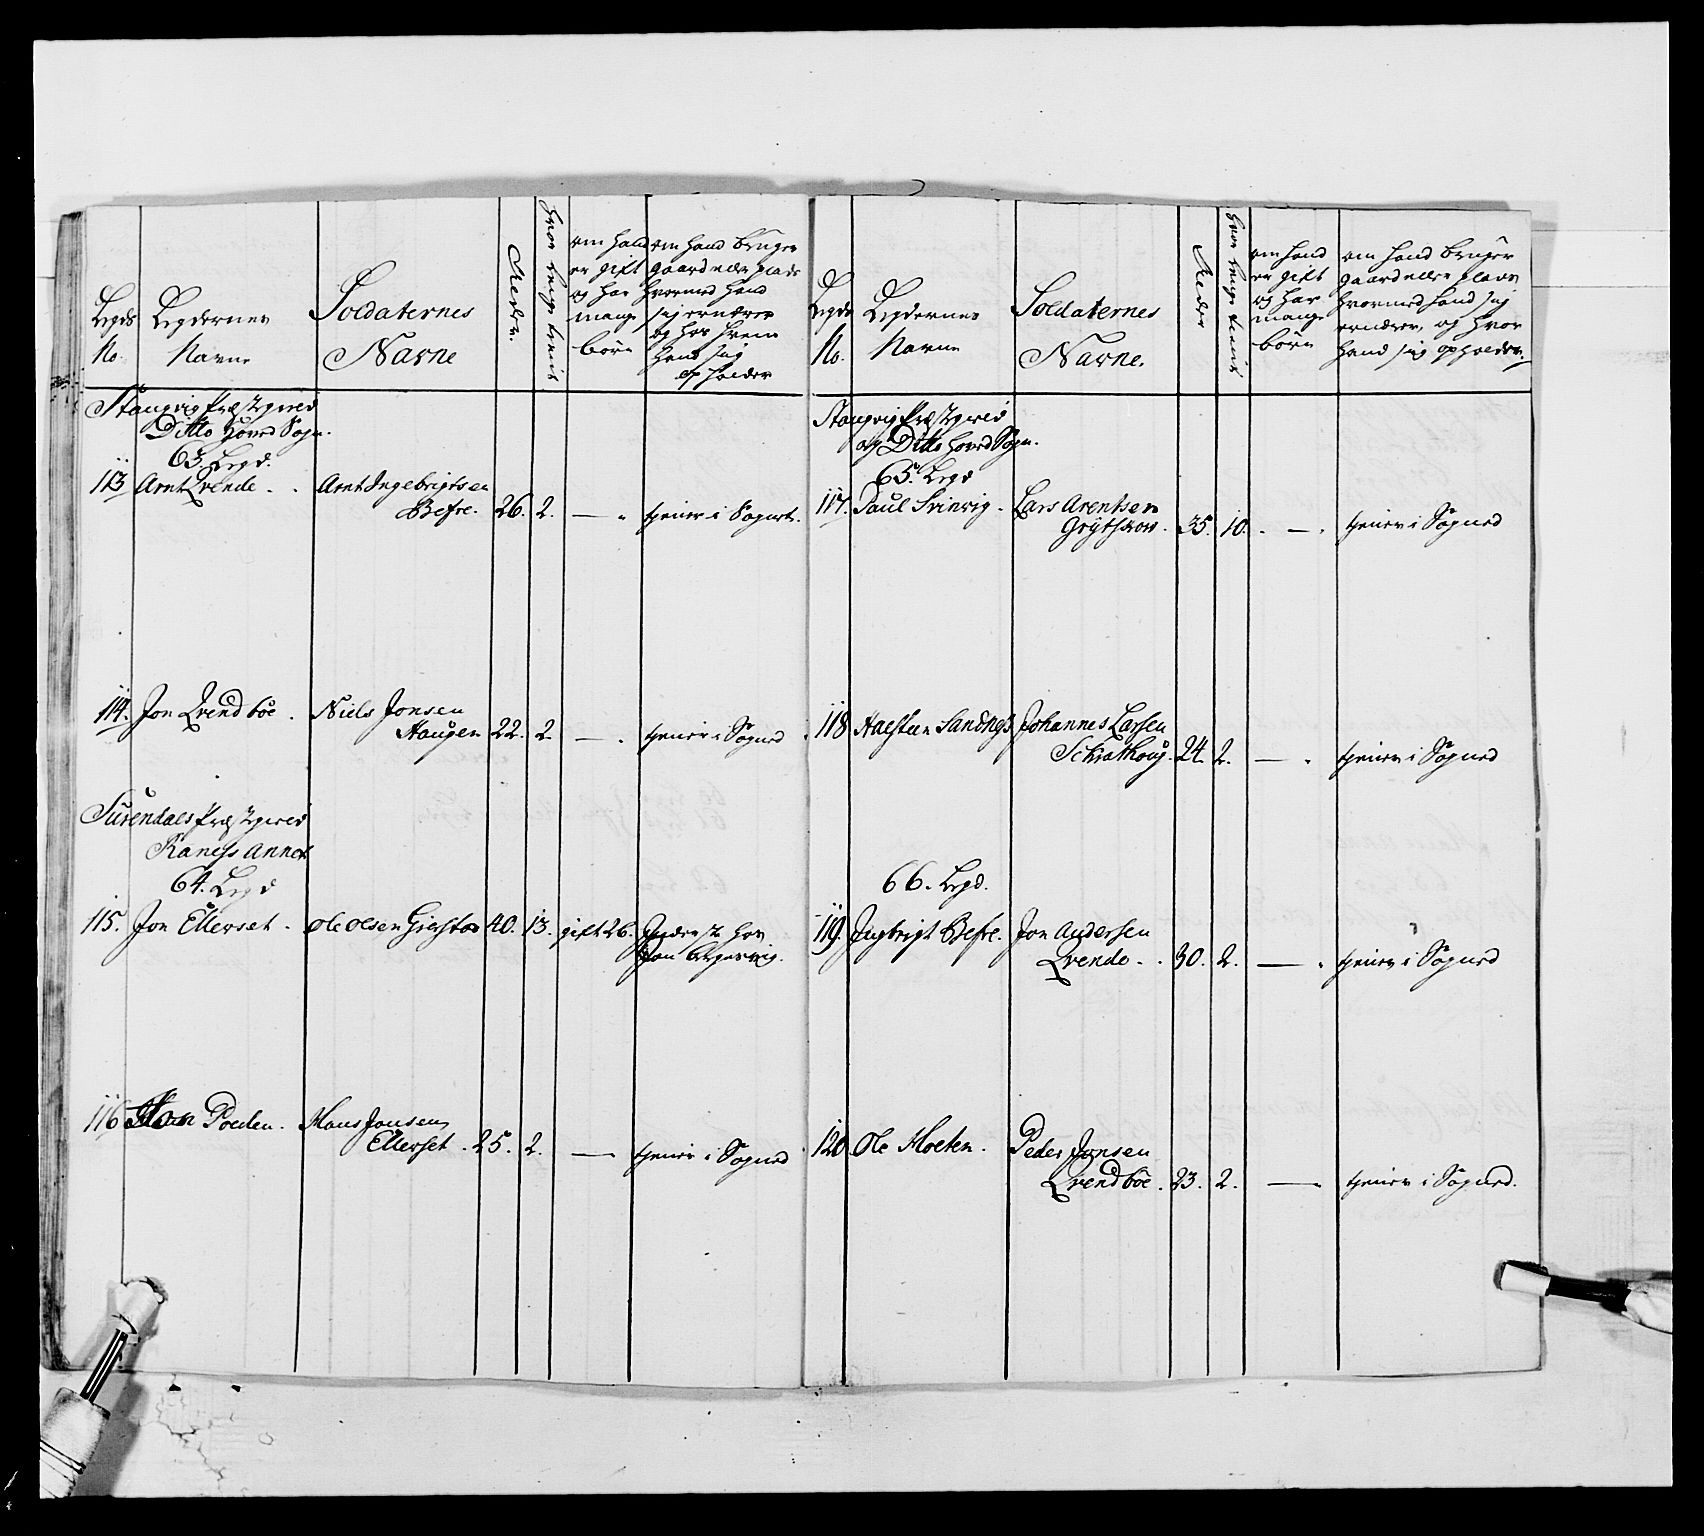 Legds No.
Legdernes Navne
Soldaternes Navne
Alder.
hvor lenge tient
om hand er gift og har mange börn
om hand bruger gaard eller plads hvormed hand sig ernærer og hos hvem hand sig opholder
Stangvig Præstegield
Ditto Hoved Sogn.
63. Legd.
113 Arnt Qvende. Arnt Ingebrigtsen
Befre. 26. 2. — tjener i Sognet.
114. Jon Qvendböe. Niels Jonsen
Haugen 22. 2 — tjener i Sogned
Surendals Præstegield
Raness Annex
64. Legd
115. Jon Ellerset. Ole Olsen 40. 13. gift 2b. Inderst hos
Jon
116 Poelen. Hans Jonsen
Ellerset. 25. 2. — tjener i Sogned
Legds No.
Legdernes Navne
Soldaternes Navne.
Alder
hvor lenge tient
om hand er gift og har mange börn
om hand bruger gaard eller plads hvormed hand sig ernærer, og hvor hand sig opholder.
Stangvig Præstegield
og Ditto Hoved Sogn.
65. Legd
117. Paul Svinvig. Lars Arentsen
Grytskou. 35. 10. — tjener i Sogned
118 Halsteen Sandnes Johannes Larsen
24. 2. — tjener i Sogned
66. Legd.
119. Ingbrigt Befre. Jon Andersen
Qvende. 30. 2. — tjener i Sogned
120 Ole Holten. Peder Jonsen
Qvendböe. 23. 2. — tjener i Sogned.